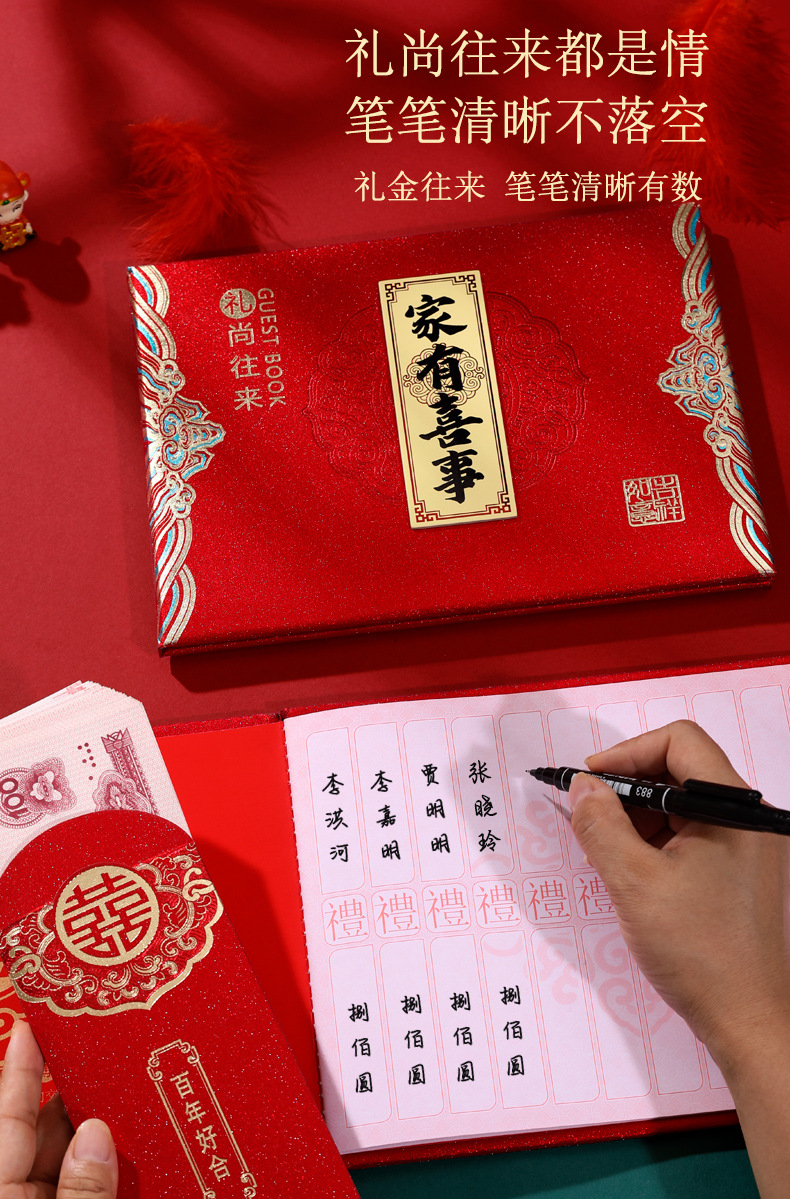 礼尚往来都是情
笔笔清晰不落空
礼金往来 笔笔清晰有数
礼尚往来
GUEST BOOK
家有喜事
吉祥如意
100
李洪河
李嘉明
贾明明
张晓玲
禮 禮 禮 禮 禮 禮
捌佰圆
捌佰圆
捌佰圆
捌佰圆
883
囍
百年好合